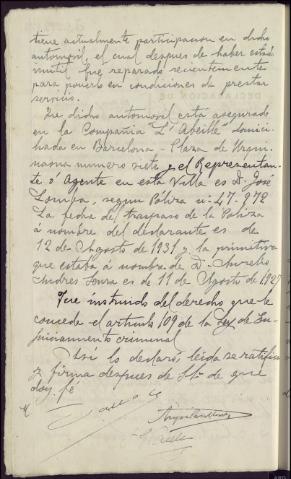 tiene actualmente participacion en dicho
automóvil, el cual despues de haber estado
inutil fué reparado recientemente
para ponerlo en condiciones de prestar
servicio.
Que dicho automovil esta asegurado
en la Compañia L'Abeille domici-
liada en Barcelona - Plaza de Urqui-
naona numero siete y el Representan-
te ó Agente en esta Villa es D. José
segun Poliza nº 47.972
La fecha del traspaso de la Poliza
á nombre del declarante es de
12 de Agosto de 1931 y la primitiva
que estaba á nombre de D. Aurelio
Andres es de 11 de Agosto de 1927
Fue instruido del derecho que le
concede el articulo 109 de la Ley de En-
juiciamiento criminal
Asi lo declaró, leida se ratifica
y firma despues de Sª de que
doy fé